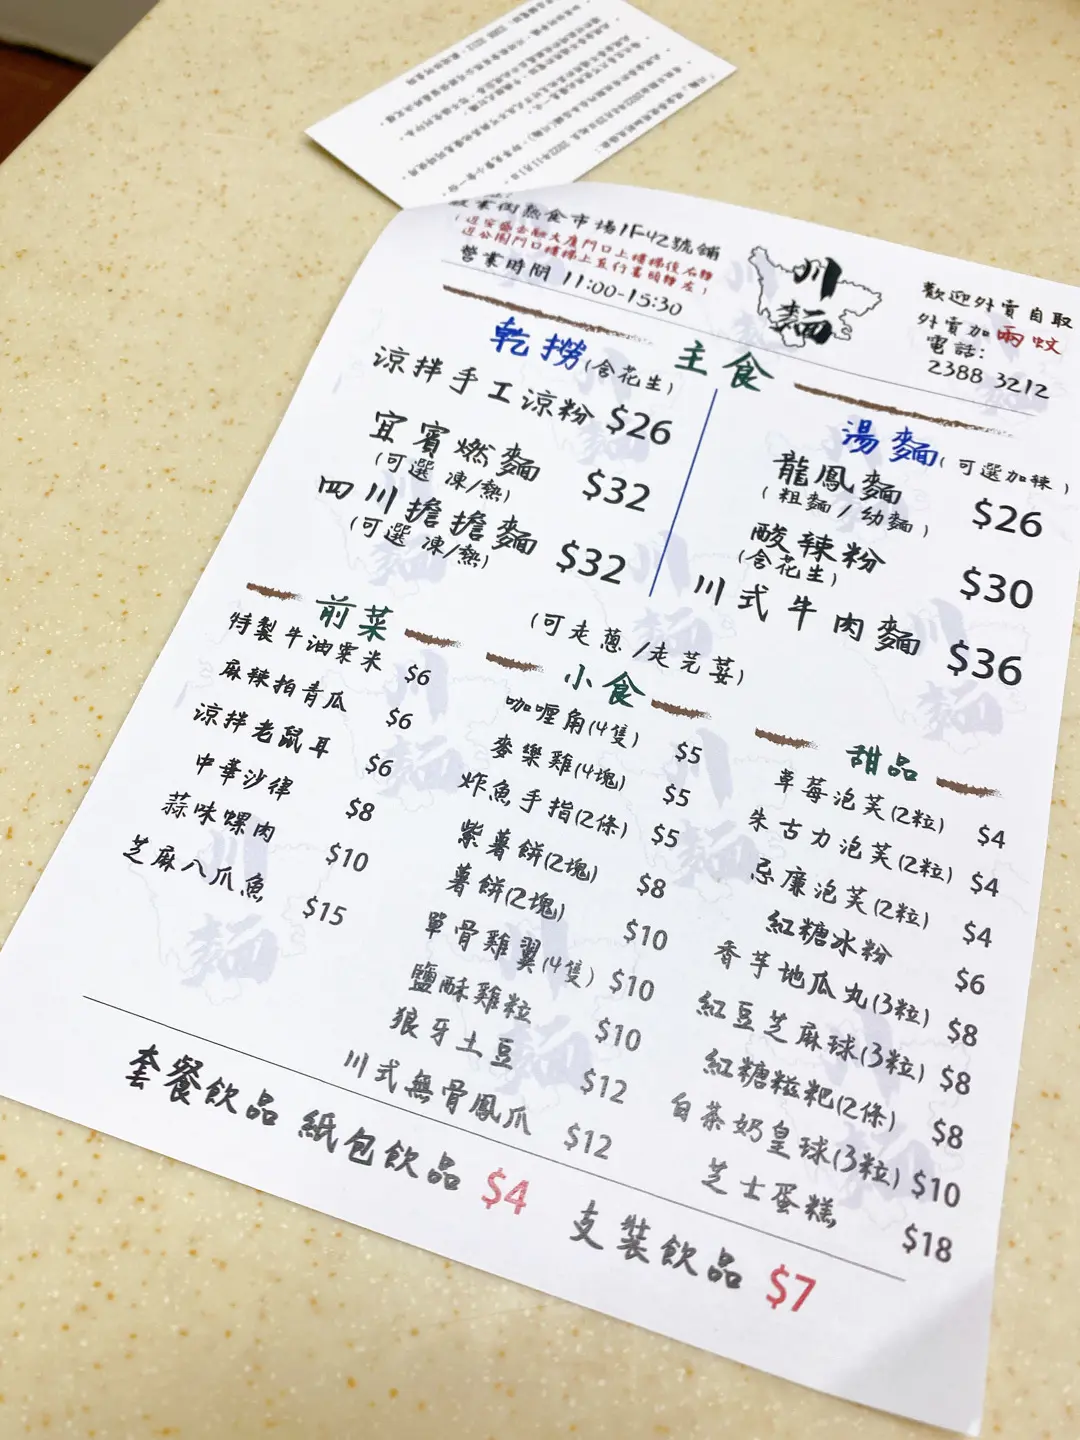 熟食市場1F42號鋪
營業時間 11:00-15:30
川麵
歡迎外賣自取
外賣加兩蚊
電話:
2388 3212
主食
乾撈(含花生)
涼拌手工涼粉 $26
宜賓燃麵 $32
(可選 凍/熱)
四川擔擔麵 $32
(可選 凍/熱)
湯麵(可選加辣)
龍鳳麵 $26
(粗麵/幼麵)
酸辣粉 $30
(含花生)
川式牛肉麵 $36
(可走蔥/走芫荽)
前菜
特製牛油粟米 $6
麻辣拍青瓜 $6
涼拌老鼠耳 $6
中華沙律 $8
蒜味螺肉 $10
芝麻八爪魚 $15
小食
咖喱角(4隻) $5
麥樂雞(4塊) $5
炸魚手指(2條) $5
紫薯餅(2塊) $8
薯餅(2塊) $10
單骨雞翼(4隻) $10
鹽酥雞粒 $10
狼牙土豆 $12
川式無骨鳳爪 $12
甜品
草莓泡芙(2粒) $4
朱古力泡芙(2粒) $4
忌廉泡芙(2粒) $4
紅糖冰粉 $6
香芋地瓜丸(3粒) $8
紅豆芝麻球(3粒) $8
紅糖糍粑(2條) $8
白茶奶皇球(3粒) $10
芝士蛋糕 $18
套餐飲品 紙包飲品 $4 支裝飲品 $7